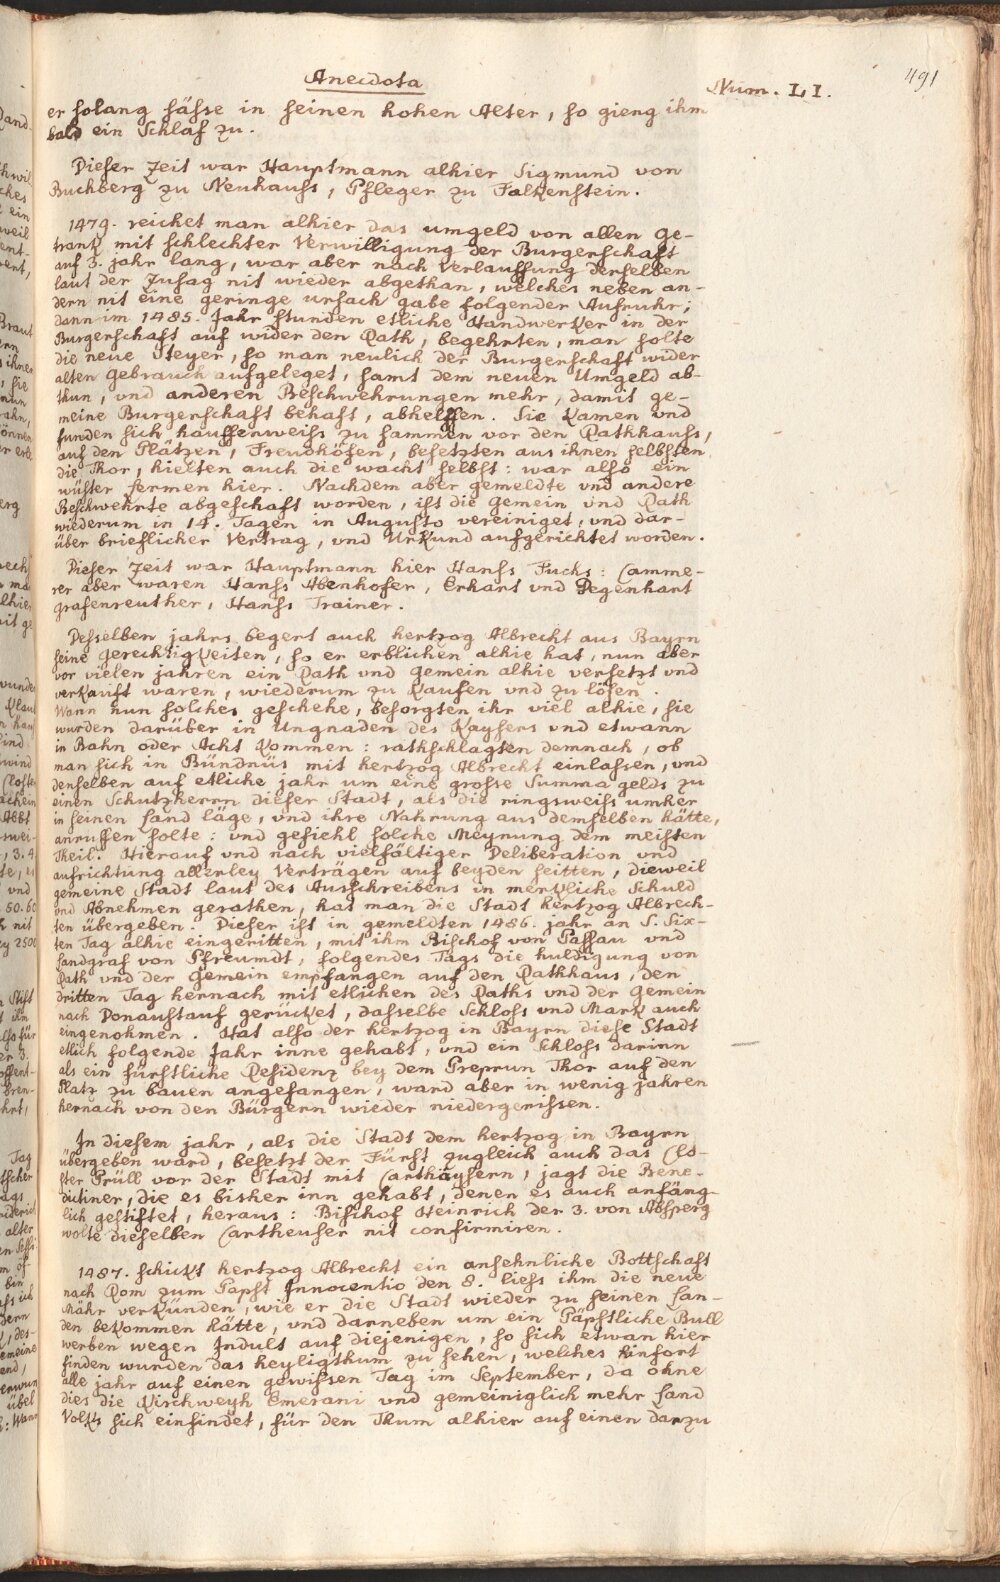 491
Anecdota
Num. LI.
er solang sässe in seinen hohen Alter, so gieng ihm
bald ein Schlaf zu.
Dieser Zeit war Hauptmann alhier Sigmund von
Buchberg zu Neuhauss, Pfleger zu Falkenstein.
1479. reichet man alhier das umgeld von allen ge-
trank mit schlechter Verwilligung der Burgerschaft
auf 3. jahr lang, war aber nach Verlauffung derselben
laut der Zusag nit wieder abgethan, welches neben an-
dern nit eine geringe ursach gabe folgender Aufruhr;
dann im 1485. Jahr stunden etliche Handwerker in der
Burgerschaft auf wider den Rath, begehrten, man solte
die neue Steyer, so man neulich der Burgerschaft wider
alten gebrauch aufgeleget, samt dem neuen Umgeld ab-
thun, vnd anderen Beschwehrungen mehr, damit ge-
meine Burgerschaft behaft, abhelffen. Sie kamen vnd
funden sich hauffenweiss zu sammen vor den Rathhauss,
auf den Plätzen, Freudhöfen, besetzten aus ihnen selbsten
die Thor, hielten auch die wacht selbst: war also ein
wüster Lermen hier. Nachdem aber gemeldte vnd andere
Beschwehrte abgeschaft worden, ist die gemein vnd Rath
wiederum in 14. Tagen in Augusto vereiniget, vnd dar-
über brieflicher Vertrag, vnd Urkund aufgerichtet worden.
Dieser Zeit war Hauptmann hier Hanss Fuchs: Camme-
rer aber waren Hanss Abenhofer, Erhart vnd Degenhart
grafenreuther, Hanss Trainer.
Desselben jahrs begert auch hertzog Albrecht aus Bayrn
seine gerechtigkeiten, so er erblichen alhie hat, nun aber
vor vielen jahren ein Rath vnd gemein alhie versetzt vnd
verkauft waren, wiederum zu kaufen vnd zu lösen.
Wann nun solches geschehe, besorgten ihr viel alhie, sie
wurden darüber in Ungnaden des Kaysers vnd etwann
in Bahn oder Acht kommen: rathschlagten demnach, ob
man sich in Bündnüs mit hertzog Albrecht einlassen, vnd
denselben auf etliche jahr um eine grosse Summa gelds zu
einen Schutzherrn dieser Stadt, als die ringsweiss umher
in seinen Land läge, vnd ihre Nahrung aus demselben hätte,
anruffen solte: vnd gefiehl solche Meynung dem meisten
Theil. Hierauf vnd nach vielfältiger Deliberation vnd
aufrichtung allerley Verträgen auf beyden seitten, dieweil
gemeine Stadt laut des Ausschreibens in merkliche Schuld
vnd Abnehmen gerathen, hat man die Stadt hertzog Albrech-
ten übergeben. Dieser ist in gemeldten 1486. jahr an S. Six-
ten Tag alhie eingeritten, mit ihm Bischof von Passau vnd
Landgraf von Pfreumdt, folgendes Tags die huldigung von
Rath vnd der gemein empfangen auf den Rathhaus, den
dritten Tag hernach mit etlichen des Raths vnd der gemein
nach Donaustauf gerücket, dasselbe Schloss vnd Mark auch
eingenohmen. Hat also der hertzog in Bayrn diese Stadt
etlich folgende Jahr inne gehabt, vnd ein Schloss darinn
als ein fürstliche Residenz bey dem Preprun Thor auf den
Platz zu bauen angefangen, ward aber in wenig jahren
hernach von den Bürgern wieder niedergerissen.
In diesem jahr, als die Stadt dem hertzog in Bayrn
übergeben ward, besetzt der Fürst zugleich auch das Clo-
ster Prüll vor der Stadt mit Carthäysern, jagt die Bene-
dictiner, die es bisher inn gehabt, denen es auch anfäng-
lich gestiftet, heraus: Bischof Heinrich der 3. von Absperg
wolte dieselben Cartheuser nit confirmiren.
1487. schickt hertzog Albrecht ein ansehnliche Bottschaft
nach Rom zum Papst Innocentio den 8. liess ihm die neue
Mähr verkunden, wie er die Stadt wieder zu seinen Lan-
den bekommen hätte, vnd darneben um ein Päpstliche Bull
werben wegen Indult auf diejenigen, so sich etwan hier
finden wurden das heyligthum zu sehen, welches hinfort
alle jahr auf einen gewissen Tag im September, da ohne
dies die Kirchweyh Emerani vnd gemeiniglich mehr Land
Volks sich einfindet, für den Thum alhier auf einen darzu